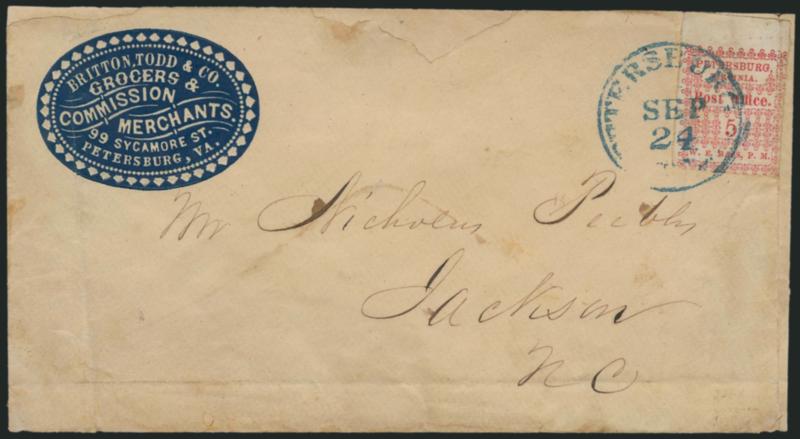 BRITTON, TODD & CO.
GROCERS &
COMMISSION
MERCHANTS,
99 SYCAMORE ST.
PETERSBURG, VA.
PETERSBURG
SEP
24
PETERSBURG,
Post Office.
5
W. E. P. M.
Mr Nicholas Peebles
Jackson
NC